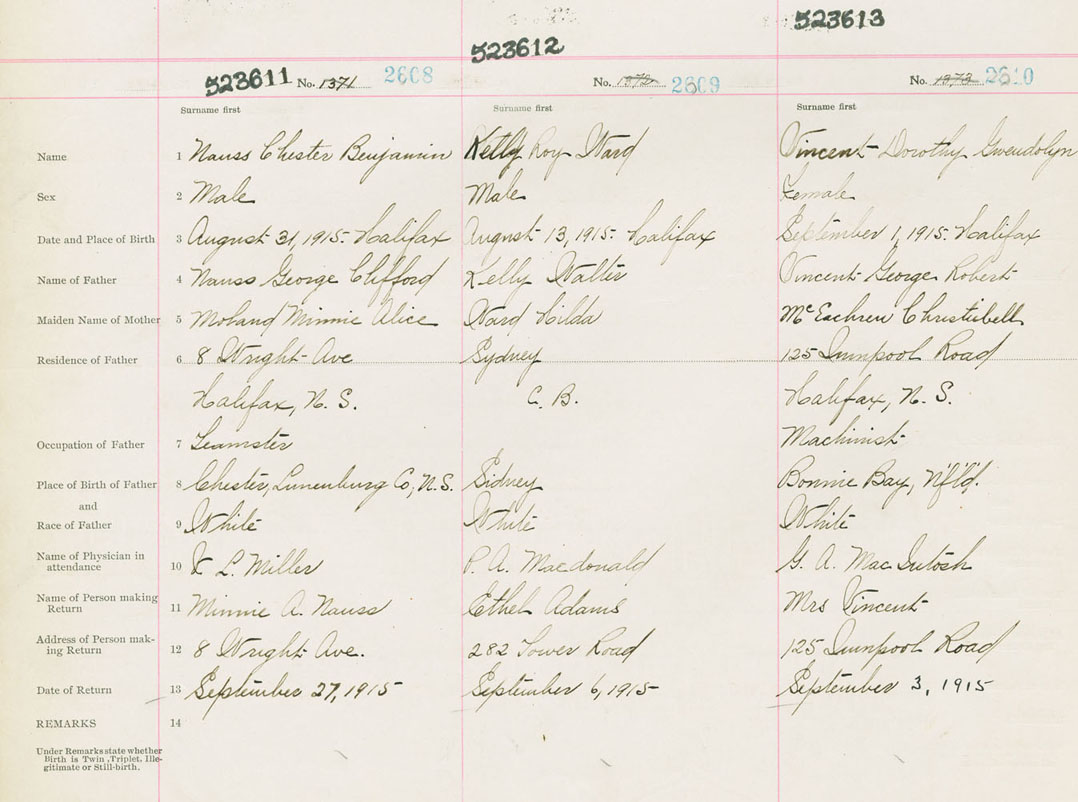 523613
523612
523611 No. 1371 2608 No. 1372 2609 No. 1373 2610
Surname first Surname first Surname first
Name 1 Nauss Chester Benjamin Kelly Roy Ward Vincent Dorothy Gwendolyn
Sex 2 Male Male Female
Date and Place of Birth 3 August 31, 1915. Halifax August 13, 1915. Halifax September 1, 1915. Halifax
Name of Father 4 Nauss George Clifford Kelly Walter Vincent George Robert
Maiden Name of Mother 5 Moland Minnie Alice Ward Hilda McEachren Christiebell
Residence of Father 6 8 Wright Ave Sydney 125 Quinpool Road
Halifax, N. S. C. B. Halifax, N. S.
Occupation of Father 7 Teamster Machinist
Place of Birth of Father 8 Chester, Lunenburg Co, N.S. Sidney Bonnie Bay, Nfld.
and
Race of Father 9 White White White
Name of Physician in
attendance 10 L. Miller P. A. Macdonald G. A. MacIntosh
Name of Person making
Return 11 Minnie A. Nauss Ethel Adams Mrs Vincent
Address of Person mak-
ing Return 12 8 Wright Ave. 282 Tower Road 125 Quinpool Road
Date of Return 13 September 27, 1915 September 6, 1915 September 3, 1915
REMARKS 14
Under Remarks state whether
Birth is Twin, Triplet, Ille-
gitimate or Still-birth.